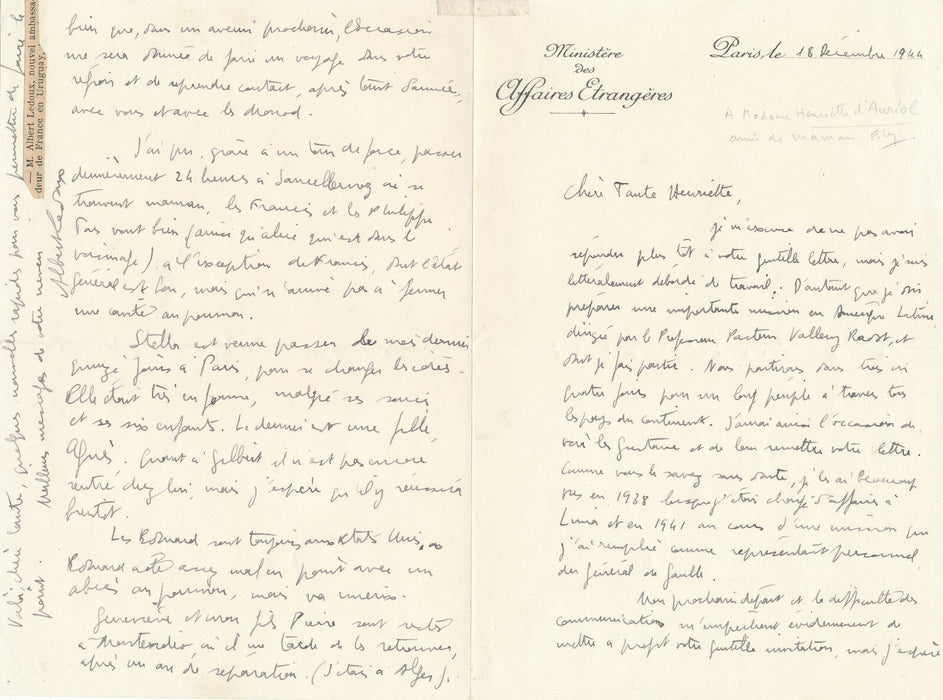 Ministère
des
Affaires Etrangères
Paris, le 18 Décembre 1944
A Madame Henriette d'Auriol
amie de maman
Chère Tante Henriette,
je m'excuse de ne pas avoir
répondu plus tôt à votre gentille lettre, mais je suis
littéralement débordé de travail. D'autant que je dois
préparer une importante mission en Amérique Latine,
dirigée par le Professeur Pasteur Vallery Radot, et
dont je fais partie. Nous partirons dans trois ou
quatre jours pour un long périple à travers tous
les pays du continent. J'aurai ainsi l'occasion de
voir les Gustave et de leur remettre votre lettre.
Comme vous le savez sans doute, je les ai beaucoup
vus en 1938 lorsque j'étais chargé d'affaires à
Lima et en 1941 au cours d'une mission que
j'ai remplie comme représentant personnel
du Général de Gaulle.
Mon prochain départ et la difficulté des
communications m'empêchent évidemment de
mettre à profit votre gentille invitation, mais j'espère
bien que, dans un avenir prochain, l'occasion
me sera donnée de faire un voyage dans votre
région et de reprendre contact, après tant d'années,
avec vous et avec les Monod.
J'ai pu, grâce à un tour de force, passer
dernièrement 24 heures à où se
trouvent maman, les Francis et les Philippe.
Tous vont bien (ainsi qu'Alice qui est dans le
voisinage), à l'exception de Francis, dont l'état
général est bon, mais qui n'arrive pas à fermer
une cavité au poumon.
Stella est venue passer le mois dernier
quinze jours à Paris, pour se changer les idées.
Elle était très en forme, malgré ses soucis
et ses six enfants. Le dernier est une fille,
Agnès. Quant à Gilbert il n'est pas encore
rentré chez lui, mais j'espère qu'il y réussira
bientôt.
Les sont toujours aux Etats Unis,
a été assez mal en point avec un
abcès au poumon, mais va mieux.
Geneviève et mon fils Pierre sont restés
à Montevideo, où il me tarde de les retrouver,
après un an de séparation. (J'étais à Alger).
Voilà, chère tante, quelques nouvelles rapides pour vous permettre de faire le
point. Meilleurs messages de votre neveu
Albert Ledoux
— M. Albert Ledoux, nouvel ambassa-
deur de France en Uruguay.